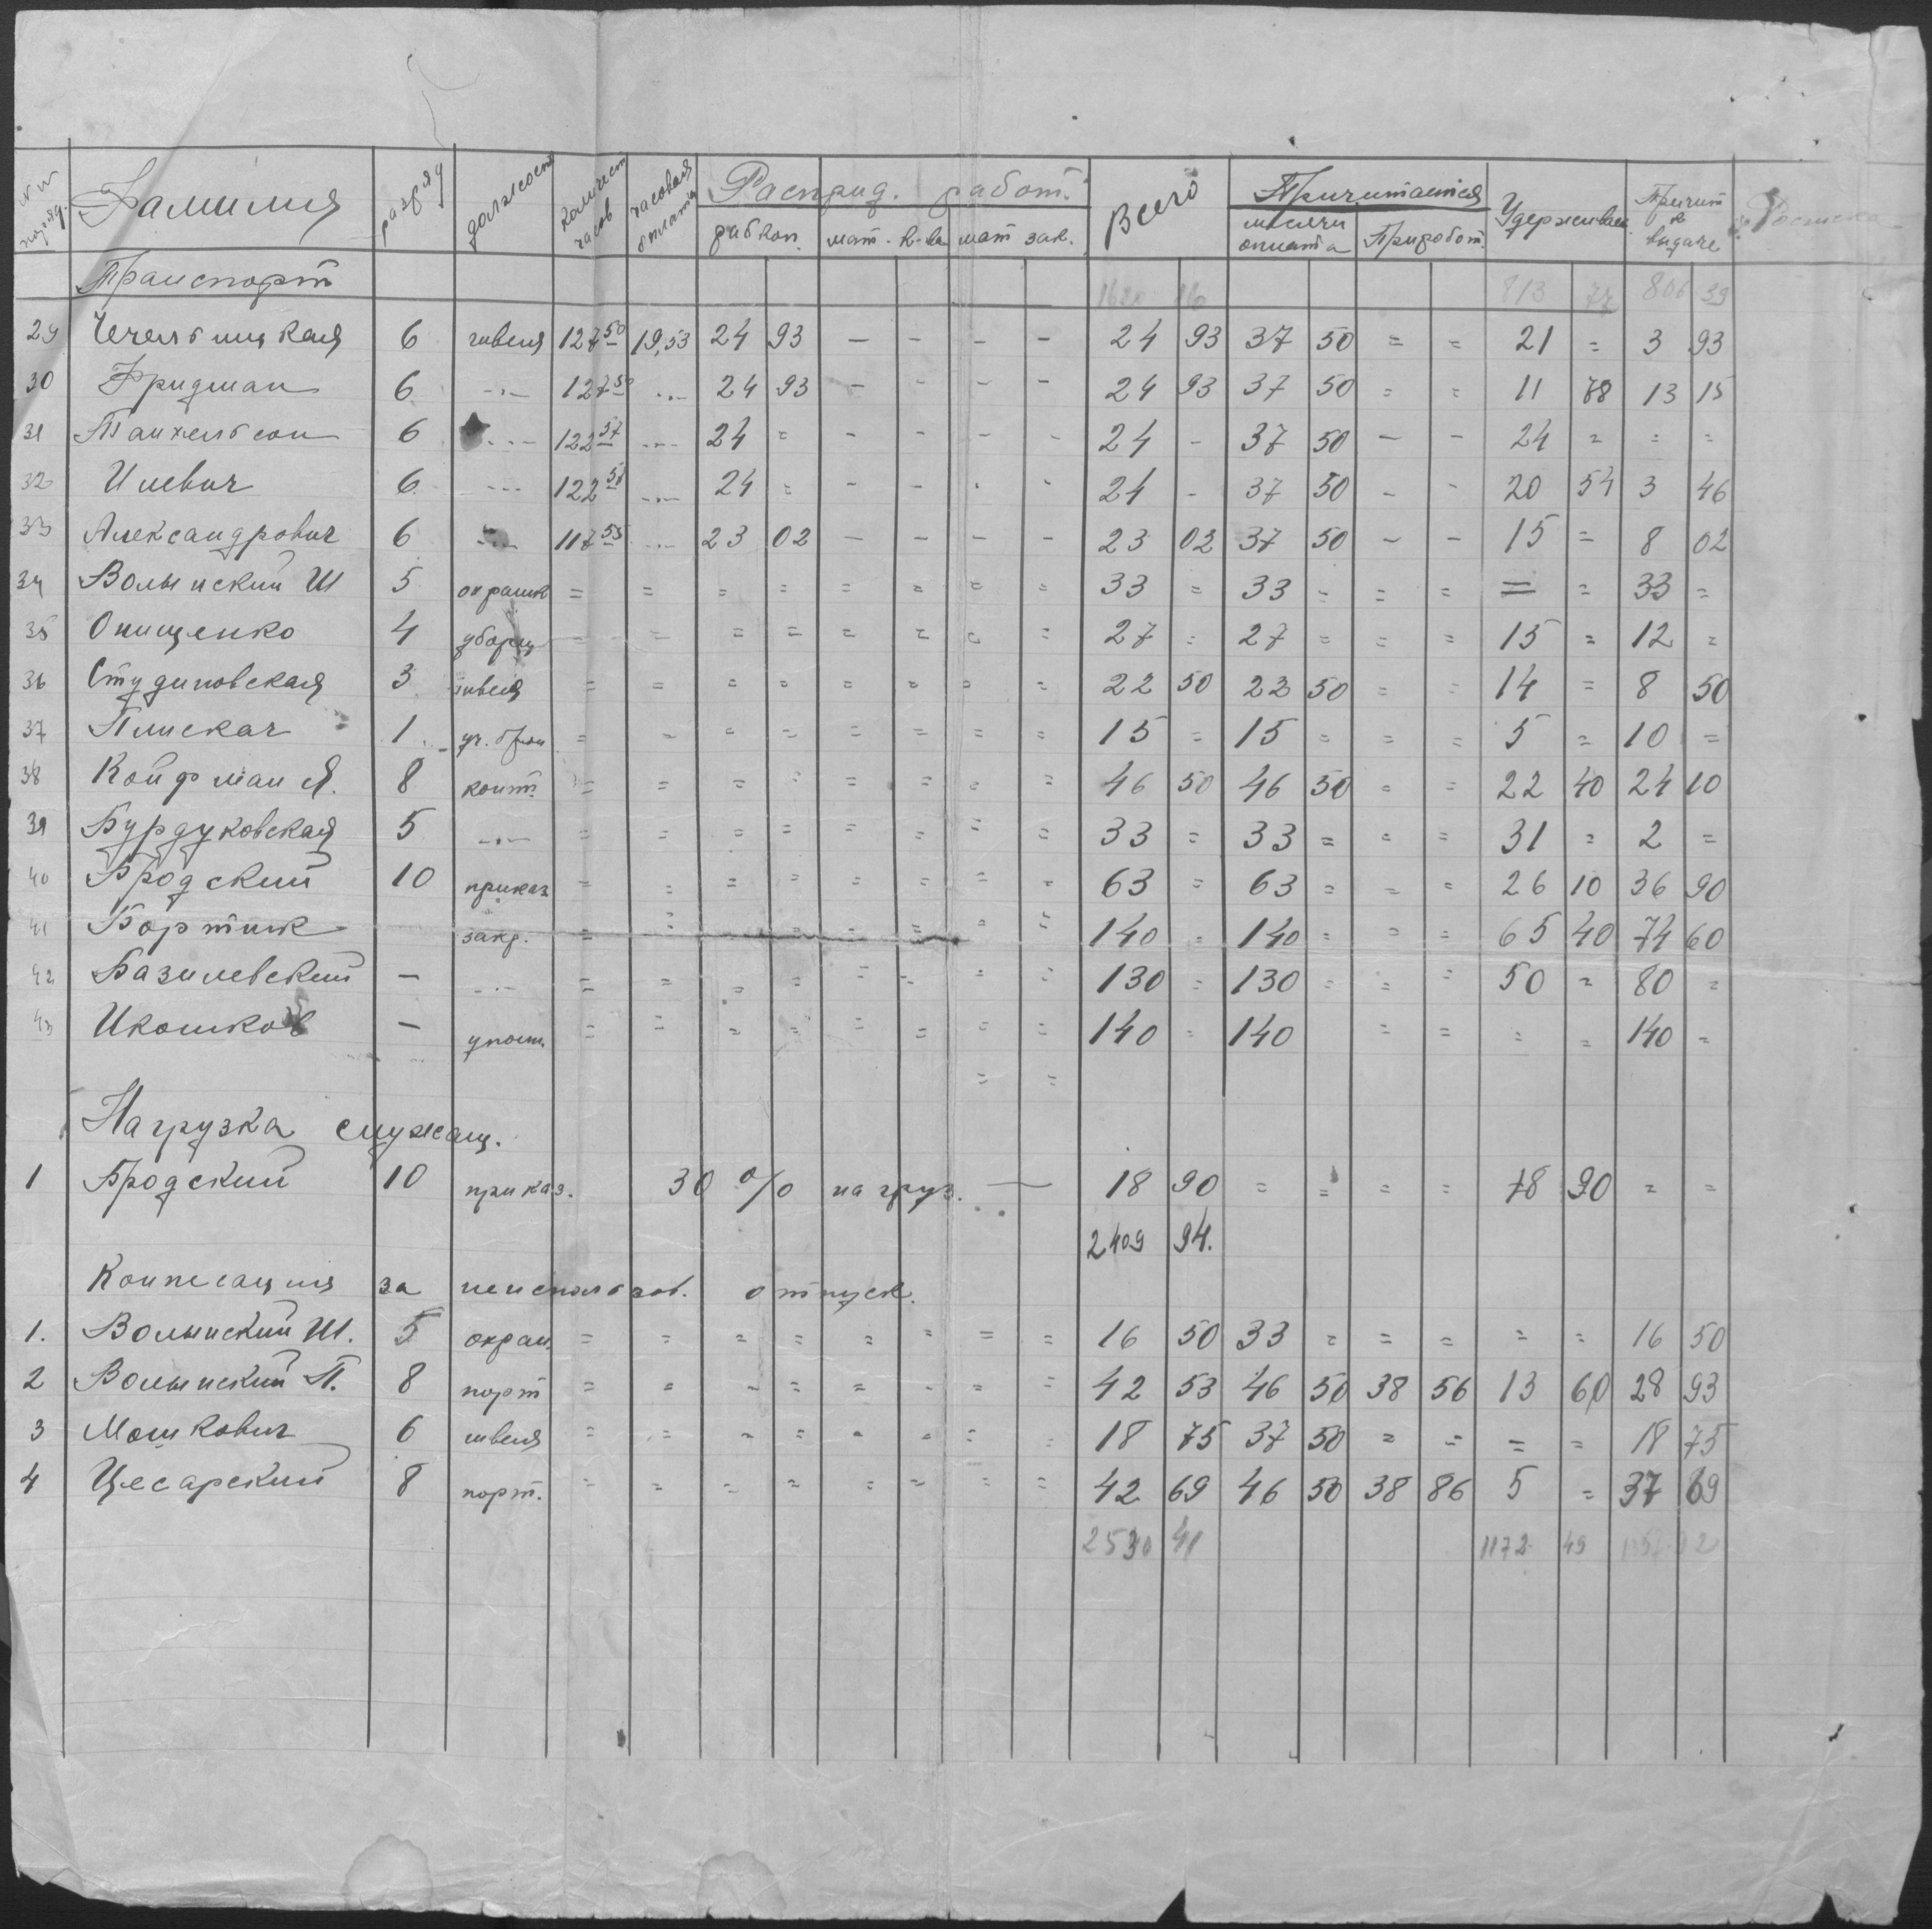 №№ поряд. Фамилия разряд должност количест часов часовая оплата Распред. работ. Всего Причитается Удерживаем Причит к выдаче Росписка
рабкоп. мат. к-ва мат зак. месячн оплата Приработ.
Транспорт 1620 813 72 806 39
29 Чечельницкая 6 швея 127 50 19,53 24 93 — - - - 24 93 37 50 = = 21 = 3 93
30 Фридман 6 -"- 127 50 -"- 24 93 - - - - 24 93 37 50 = = 11 78 13 15
31 Танхельсон 6 -"- 122 57 -"- 24 = - - - - 24 - 37 50 - - 24 = = =
32 Илевич 6 -"- 122 58 -"- 24 = - - - - 24 - 37 50 - - 20 54 3 46
33 Александрович 6 -"- 117 55 -"- 23 02 - - - - 23 02 37 50 - - 15 = 8 02
34 Волынский Ш 5 охранник = = = = = = = = 33 = 33 = = = = = 33 =
35 Онищенко 4 уборщ = = = = = = = = 27 = 27 = = = 15 = 12 =
36 Студиновская 3 швея = = = = = = = = 22 50 22 50 = = 14 = 8 50
37 Плискач 1 уч. = = = = = = = = 15 = 15 = = = 5 = 10 =
38 Койфман Я. 8 конт. = = = = = = = = 46 50 46 50 = = 22 40 24 10
39 Бурдуковская 5 -"- = = = = = = = = 33 = 33 = = = 31 = 2 =
40 Бродский 10 приказ = = = = = = = = 63 = 63 = = = 26 10 36 90
41 Бортник закр. = = = = = = = 140 = 140 = = = 65 40 74 60
42 Базилевский — -"- = = = = = = = = 130 = 130 = = = 50 = 80 =
43 Икошков — упол. = = = = = = = = 140 = 140 = = = = 140 =
= =
Нагрузка служащ.
1 Бродский 10 приказ. 30 % нагруз. — 18 90 = = = = 18 90 = =
2409 94.
Компесация за неиспользов. отпуск.
1. Волынский Ш. 5 охран. = = = = = = = = 16 50 33 = = = = = 16 50
2 Волынский П. 8 порт = = = = = = = = 42 53 46 50 38 56 13 60 28 93
3 Мошкович 6 швея = = = = = = = = 18 75 37 50 = = = = 18 75
4 Цесарский 8 порт. = = = = = = = = 42 69 46 50 38 86 5 = 37 69
2530 41 1172 49